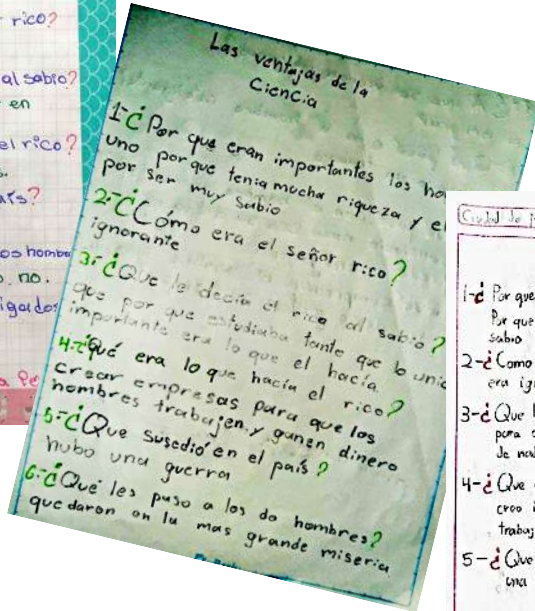 rico?
al sabio?
en
el rico?
os hombre
no.
Las ventajas de la
Ciencia
1-¿Por que eran importantes los ho
uno porque tenia mucha riqueza y el
por ser muy sabio
2-¿Cómo era el señor rico?
ignorante
3-¿Que le decia el rico al sabio?
que por que estudiaba tanto que lo unic
importante era lo que el hacia.
4-¿qué era lo que hacia el rico?
crear empresas para que los
hombres trabajen y ganen dinero
5-¿Que susedió en el país?
hubo una guerra
6-¿Que les paso a los do hombres?
quedaron en la mas grande miseria
1-¿ Por que
Por que
sabio
2-¿ Como
era ig
3-¿ Que
para
4-¿ Que
creo
trabaj
5-¿ Que
una